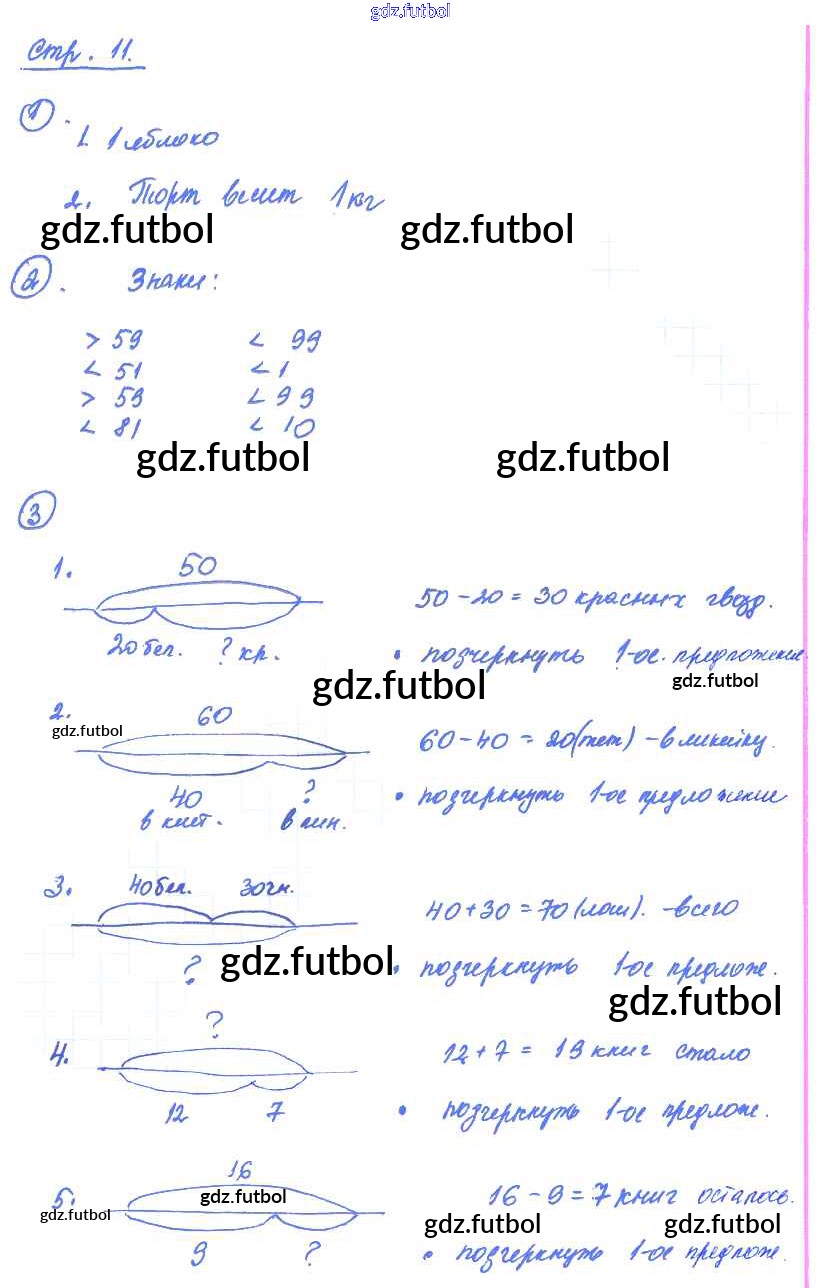 gdz.futbol
Стр. 11.
1.
1. 1 яблоко
2. Торт весит 1 кг
gdz.futbol gdz.futbol
2. Знаки:
> 59 < 99
< 51 < 1
> 59 < 99
< 81 < 10
gdz.futbol gdz.futbol
3
1. 50
50 - 20 = 30 красных гвозд.
20 бел. ? кр.
• подчеркнуть 1-ое. предложение.
gdz.futbol gdz.futbol
2. 60
gdz.futbol
60 - 40 = 20 (тет) - в линейку.
40 ?
в клет. в лин.
• подчеркнуть 1-ое предложение
3. 40 бел. 30 чн.
40 + 30 = 70 (лош). - всего
?
gdz.futbol
• подчеркнуть 1-ое предлож.
gdz.futbol
4. ?
12 + 7 = 19 книг стало
12 7
• подчеркнуть 1-ое предлож.
5. 16
gdz.futbol
gdz.futbol
16 - 9 = 7 книг осталось.
gdz.futbol gdz.futbol
9 ?
• подчеркнуть 1-ое предлож.